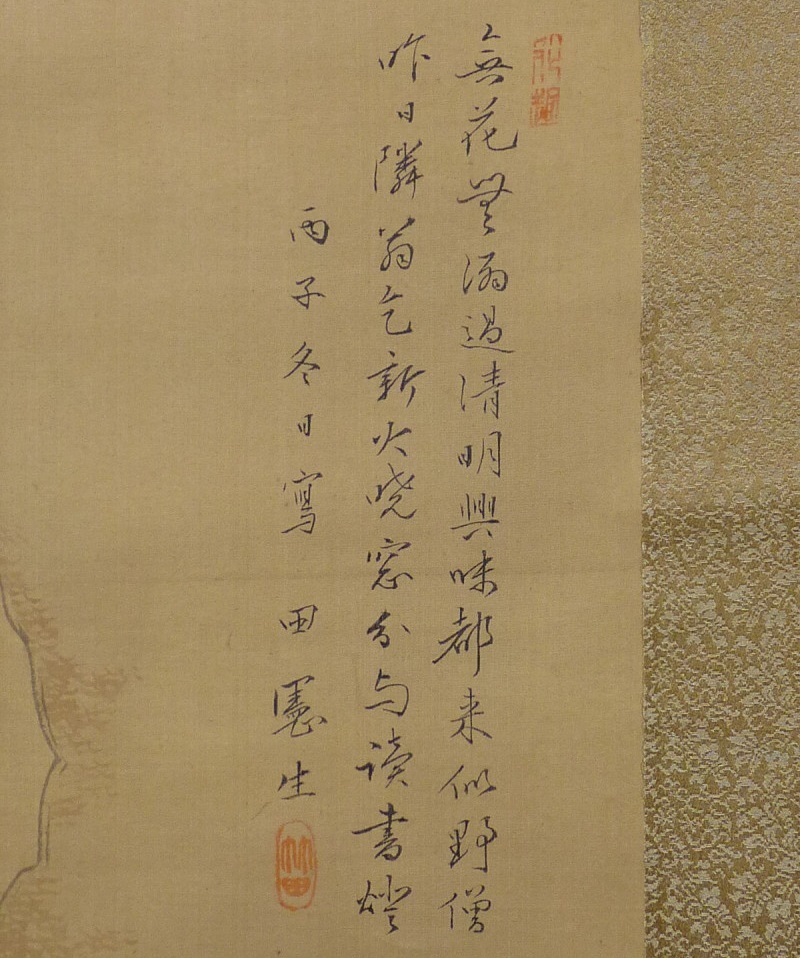 無花無酒過清明興味都来似野僧
昨日隣翁乞新火暁窓分与讀書燈
丙子冬日寫 田憲生
竹田